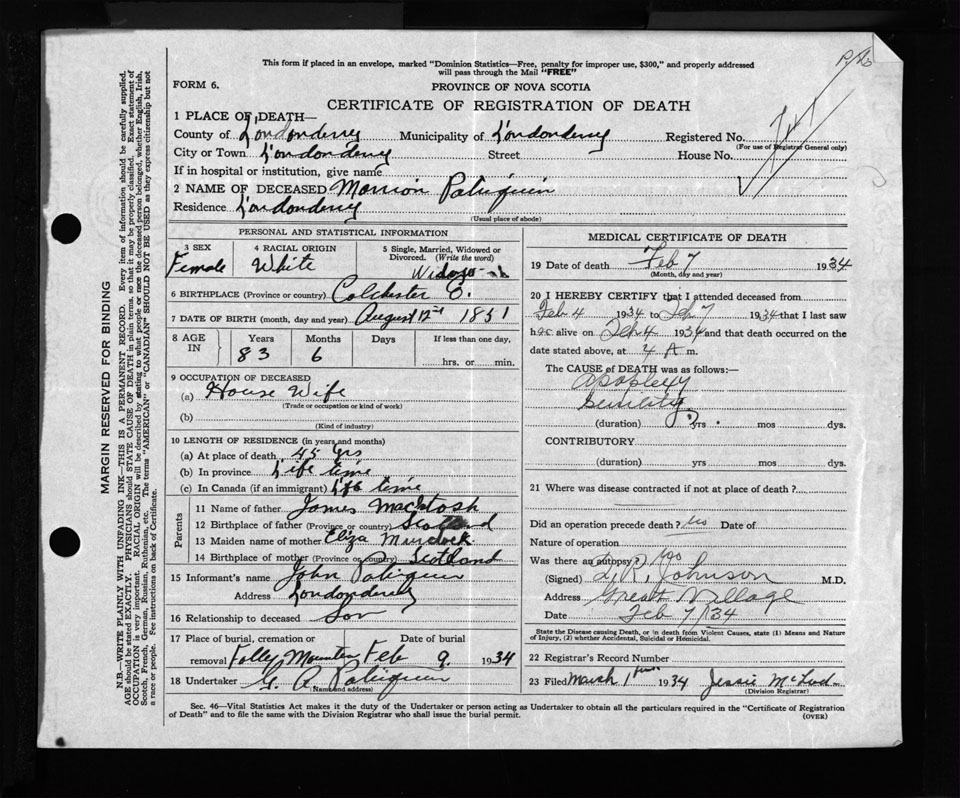 This form if placed in an envelope, marked "Dominion Statistics—Free, penalty for improper use, $300," and properly addressed
will pass through the Mail "FREE"
FORM 6.
PROVINCE OF NOVA SCOTIA
CERTIFICATE OF REGISTRATION OF DEATH
1 PLACE OF DEATH—
County of Londonderry Municipality of Londonderry Registered No.
(For use of Registrar General only)
City or Town Londonderry Street House No.
If in hospital or institution, give name
2 NAME OF DECEASED Marrion Patriquin
Residence Londonderry
(Usual place of abode)
PERSONAL AND STATISTICAL INFORMATION
3 SEX 4 RACIAL ORIGIN 5 Single, Married, Widowed or Divorced. (Write the word)
Female White
6 BIRTHPLACE (Province or country) Colchester C.
7 DATE OF BIRTH (month, day and year) August 12 1851
8 AGE IN Years Months Days If less than one day,
83 6 hrs. or min.
9 OCCUPATION OF DECEASED
(a) House Wife
(Trade or occupation or kind of work)
(b)
(Kind of industry)
10 LENGTH OF RESIDENCE (in years and months)
(a) At place of death 45 yrs
(b) In province Life time
(c) In Canada (if an immigrant) Life time
Parents
11 Name of father James MacIntosh
12 Birthplace of father (Province or country) Scotland
13 Maiden name of mother Eliza Murdock
14 Birthplace of mother (Province or country) Scotland
15 Informant's name John Patriquin
Address Londonderry
16 Relationship to deceased Son
17 Place of burial, cremation or Date of burial
removal Folly Mountain Feb 9. 1934
18 Undertaker G. R Patriquin
(Name and address)
MEDICAL CERTIFICATE OF DEATH
19 Date of death Feb 7 1934
(Month, day and year)
20 I HEREBY CERTIFY that I attended deceased from
Feb 4 1934 to Feb 7 1934 that I last saw
h er alive on Feb 4 1934 and that death occurred on
date stated above, at 4 A m.
The CAUSE of DEATH was as follows:—
Apoplexy
Senility
(duration) ? yrs. mos dys.
CONTRIBUTORY
(duration) yrs mos dys.
21 Where was disease contracted if not at place of death?
Did an operation precede death? No Date of
Nature of operation
Was there an autopsy? No
(Signed) L. R. Johnson M.D.
Address Great Village
Date Feb 7/34
State the Disease causing Death, or in death from Violent Causes, state (1) Means and Nature
of Injury, (2) whether Accidental, Suicidal or Homicidal.
22 Registrar's Record Number
23 Filed March 1st 1934 Jessie McLeod
(Division Registrar)
Sec. 46—Vital Statistics Act makes it the duty of the Undertaker or person acting as Undertaker to obtain all the particulars required in the "Certificate of Registration
of Death" and to file the same with the Division Registrar who shall issue the burial permit.
(OVER)
MARGIN RESERVED FOR BINDING
N.B.—WRITE PLAINLY WITH UNFADING INK—THIS IS A PERMANENT RECORD. Every item of information should be carefully supplied.
AGE should be stated EXACTLY. PHYSICIANS should STATE CAUSE OF DEATH in plain terms, so that it may be properly classified. Exact statement of
OCCUPATION is very important. RACIAL ORIGIN will be described by stating to what people or race the deceased person belonged, whether English, Irish,
Scotch, French, German, Russian, Ruthenian, etc. The terms "AMERICAN" or "CANADIAN" SHOULD NOT BE USED as they express citizenship but not
a race or people. See instructions on back of Certificate.